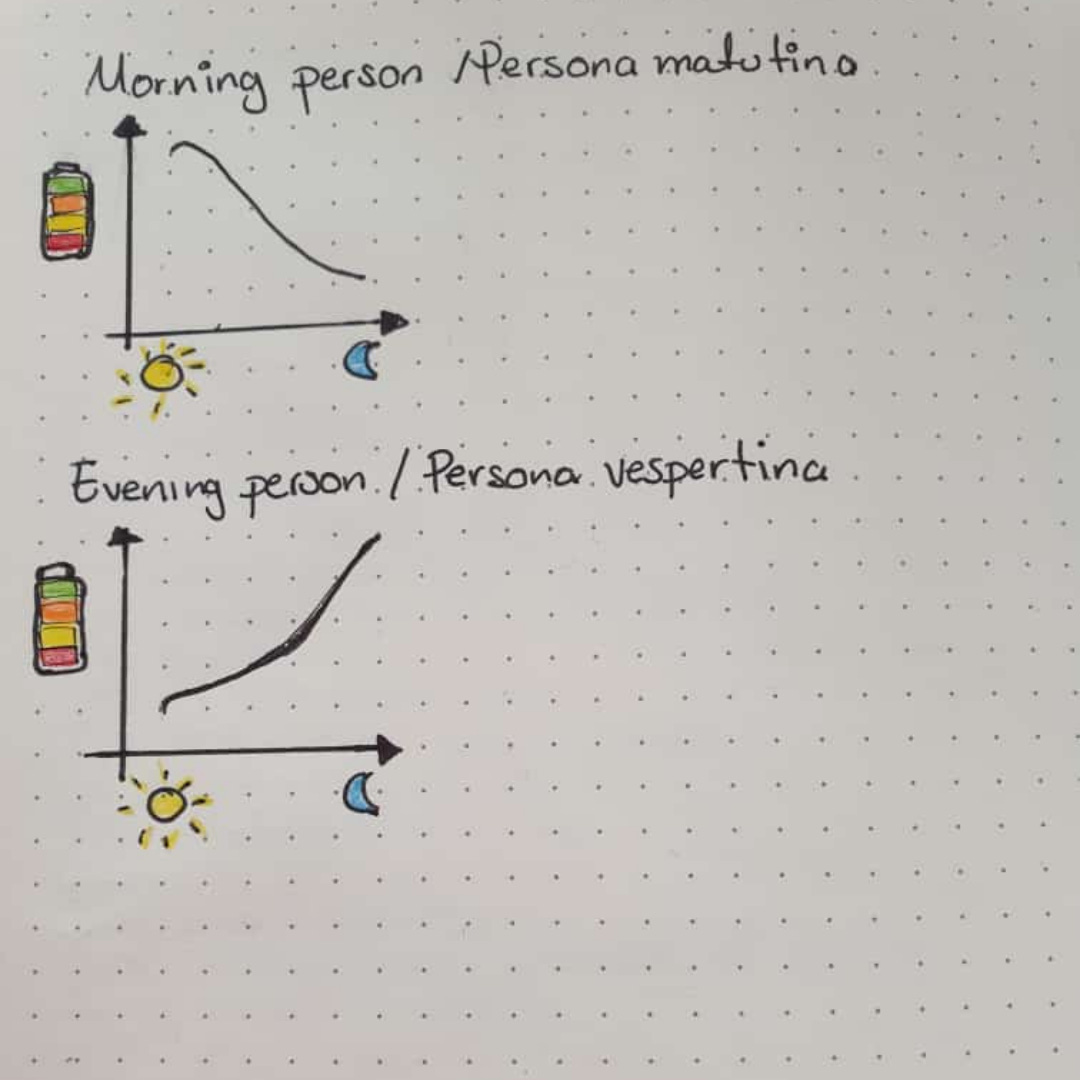 Morning person / Persona matutina
Evening person / Persona vespertina